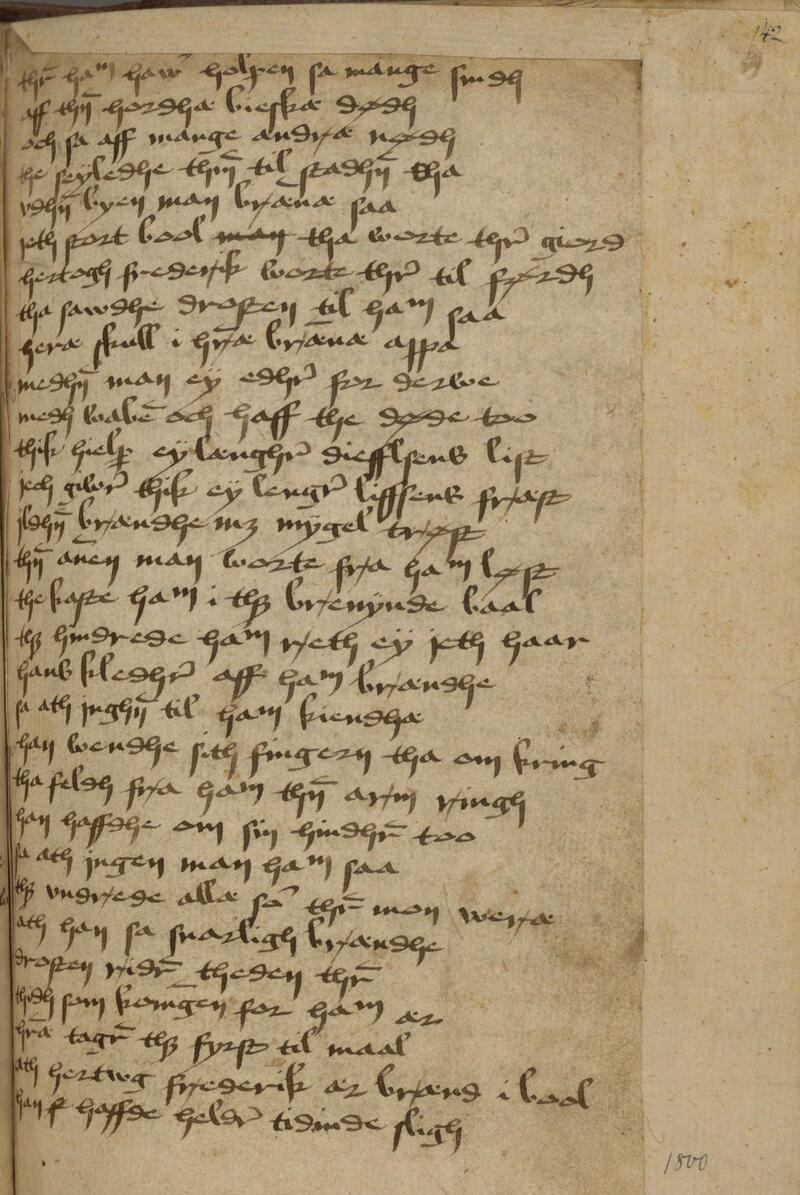 142
thr̄ ham haw̄ holpen sa mange sindh
aff thn̄ hordhæ bieskæ dødh
och sa aff mange andræ nødh
the seyledhe thm̄ til stadhn̄ tha
vdhn̄ byen man brænæ saa
jeth stort bool man tha worte thr̄ giord
hertogh frederik worte thr̄ til førdh
tha sawdhe drosten til ham saa
heræ skull i hr̄æ brænæ appa
medhn̄ man ey edhr̄ for derwe
medh wabē och haff the døde too
thik hielp̄ ey længhr̄ diefflsens list
jech giwr̄ thik ey lengr̄ liffsens fræst
ildhn̄ brændhe mz mygel trøst
thn̄ anen man worte fra ham løst
the kaste ham i thz brenynde baal
thz hindrede ham ræth ey jeth haar
hans kledhr̄ aff ham brændhe
sa ath jnghn̄ til ham kiendhæ
han wendhe sith fingern tha om kring
tha feldh fra ham thn̄ arm ringh
han haffdhe om sin hindhr̄ too
sa ath jngen man ham saa
thz vndrede allæ sō thr̄ mon weræ
ath han sa snarligh brændhe
drosten ridr̄ theden thr̄
thidh som koingen for ham ær
hr̄æ tagr̄ thz fyrst til maal
ath hertwg frederik ær brænd i bool
han haffde heldr̄ tidinde sligh
1800